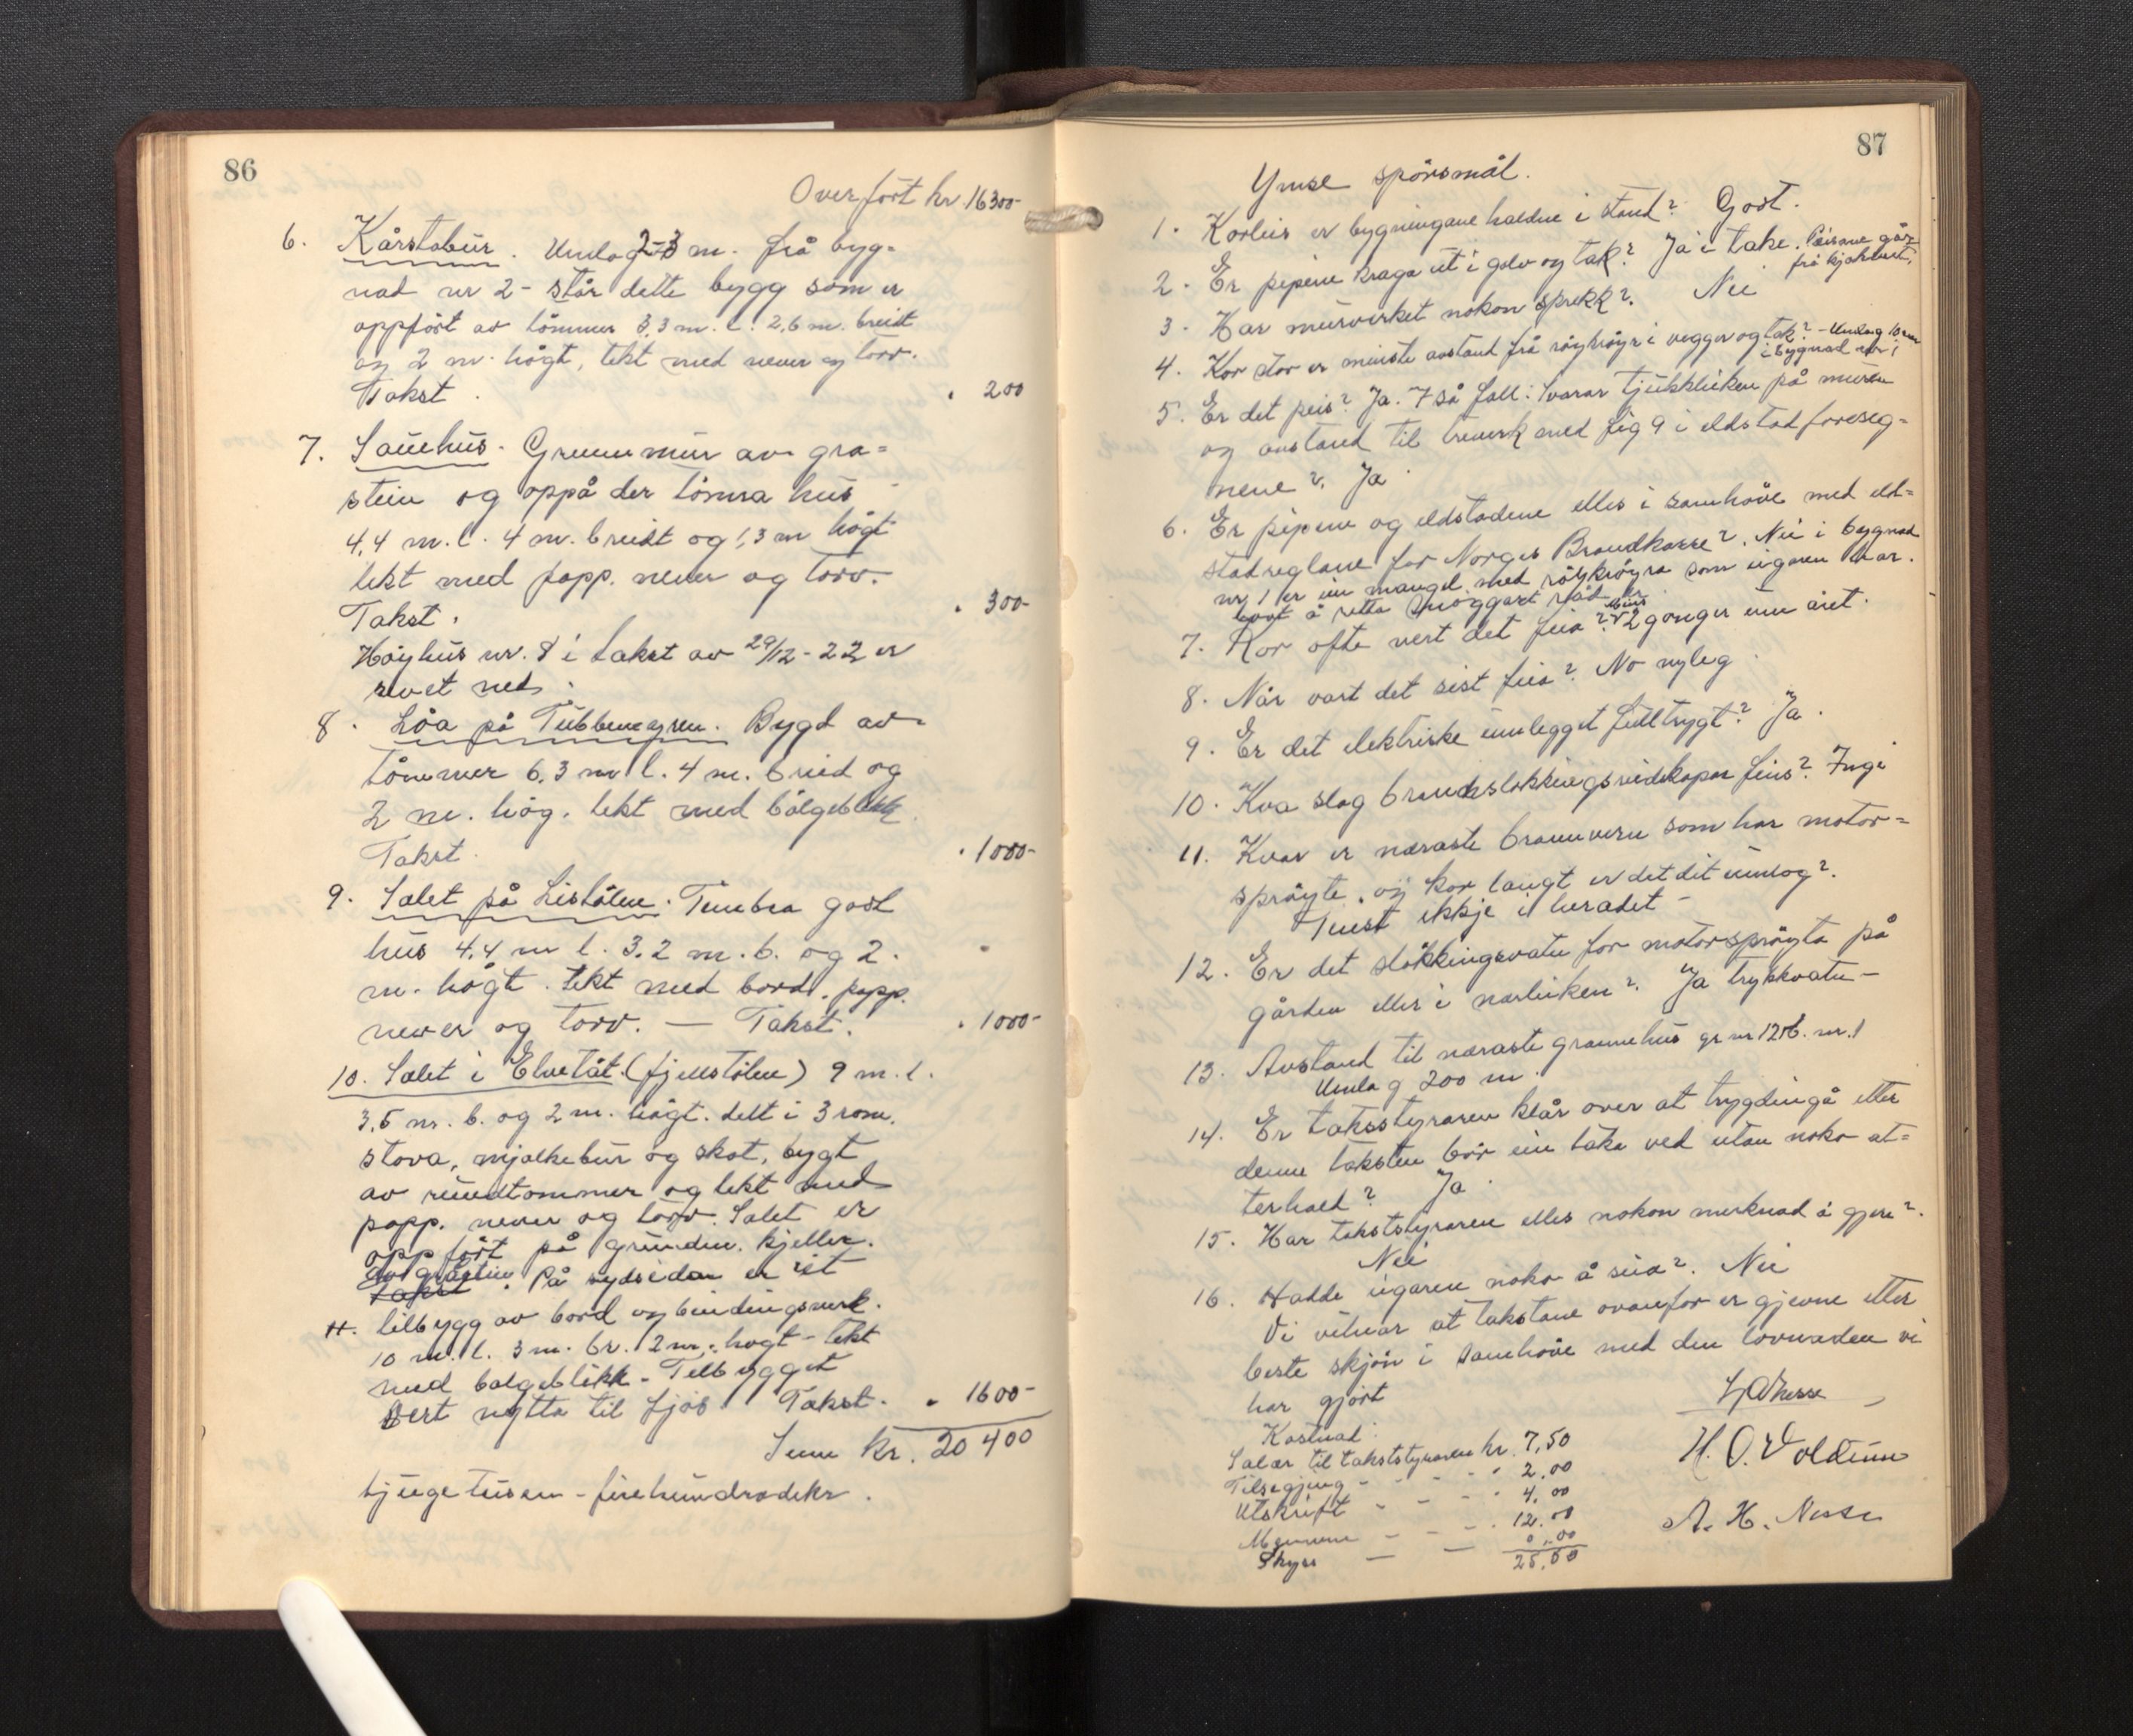 86
Overført kr 16300-
6. Kårstabur. Umlag 2-3 m. frå byg=
nad nr 2 - står dette bygg som er
oppført av tömmer 3,3 m. l. 2,6 m. breidt
og 2 m. högt, tekt med never og torv.
Takst . " 200
7. Sauehus. Grunnmur av grå=
stein og oppå der tömra hus
4,4 m. l. 4 m. breidt og 1,3 m högt
tekt med papp. never og torv.
Takst. " 300-
Höyhus nr. 8 i takst av 29/12-22 er
rivet ned.
8. Löa på Tubbemyren. Bygd av
tömmer 6,3 m l. 4 m. breid og
2 m. hög. tekt med bölgeblikk
Takst. " 1000-
9. Sælet på Listölen. Timbra godt
hus 4,4 m l. 3,2 m. b. og 2.
m. högt. tekt med bord. papp.
never og torv. — Takst. " 1000-
10. Sælet i (fjellstölen) 9 m. l.
3,5 m. b. og 2 m. högt. delt i 3 rom.
stova, mjølkebur og skot, bygt
av rundtommer og tekt med
papp. never og torv. Sælet er
oppfört på grunden. kjeller.
av gråstein. På sydsidan er eit
tilbygg av bord og bindingsverk.
10 m. l. 3 m. br. 2 m. högt - tekt
med bølgeblikk - Tilbygget
vert nytta til fjös Takst. " 1600-
Sum kr. 20 400
tjugetusen - firehundradekr.
87
Ymse spörsmål.
1. Korleis er bygningane haldne i stand? Godt.
2. Er pipene kraga ut i golv og tak? Ja i take. Peisane går
frå kjellaren.
3. Har murverket nokon sprekk? Nei
4. Kor stor er minste avstand frå röykröyr i vegger og tak? - Umlag 10 cm
i bygnad nr 1
5. Er det peis? Ja. I så fall: Svarar tjukkleiken på muren
og avstand til treverk med fig 9 i eldstadforeseg=
nene? Ja
6. Er pipene og eldstadene elles i samhöve med eld=
stadreglane for Norges Brandkasse? Nei i bygnad
nr 1 er ein mangel med röykröyra som eigaren har.
lovt å retta snöggast råd er
7. Kor ofte vert det feia? Minst 2 gonger um året.
8. Når vart det sist feia? No nyleg
9. Er det elektriske innlegget fulltrygt? Ja.
10. Kva slag brandslokkingsreidskapar finns? Ingi
11. Kvar er næraste brannvern som har motor=
spröyte, og kor langt er det dit umlag?
Finst ikkje i heradet -
12. Er det slökkingsvatn for motorspröyta på
gården eller i nærleiken? Ja trykkvatn -
13. Avstand til næraste grannehus gr nr 126 b. nr. 1
Umlag 200 m.
14. Er takststyraren klår over at trygdinga etter
denne taksten bör ein taka ved utan noko at=
terhald? Ja.
15. Har takststyraren elles nokon merknad å gjere?
Nei
16. Hadde eigaren noko å seia? Nei
Vi vitnar at takstane ovanfor er gjevne etter
beste skjön i samhöve med den lovnaden vi
har gjort
Kostnad:
Salær til takststyraren kr. 7,50
Tilsegjing - - - " 2,00
Utskrift - - - " 4,00
- - - " 12,00
Skyss — —
25,50
H. O. Voldum
A. H. Nesse